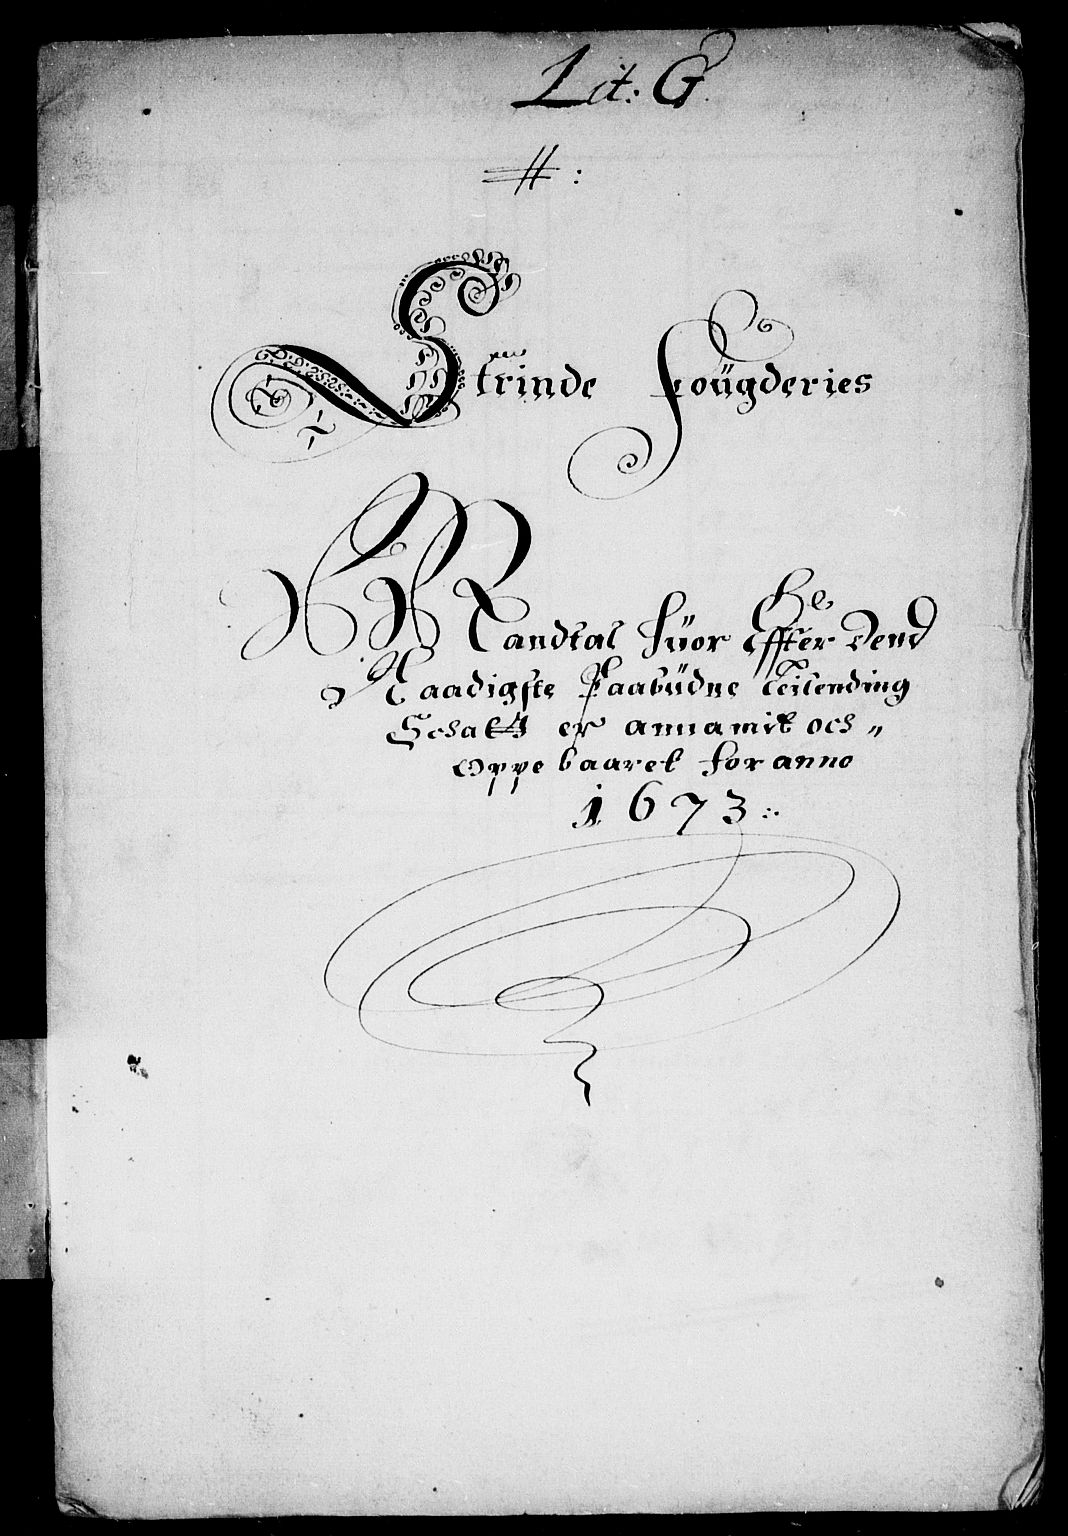 Lit: G
#:
Strinde Fougderies
Mandtal hüor Effter Dend
Naadigste Paabüdne Leilending
Schatt er annamit och
Oppebaaret for anno
1673